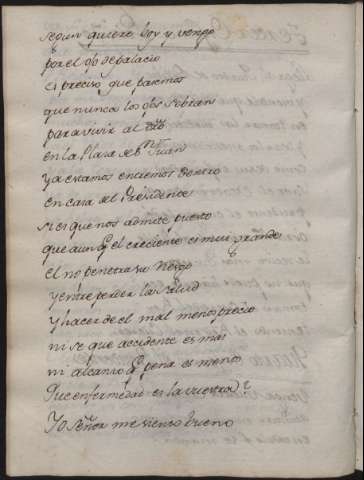 segun quiero boy y vengo
por el qto de palacio
es preciso que paremos
que nunca los ojos se abran
para vivir al
en la Plasa de Sn Juan
ya estamos entremos dentro
en casa del Presidente
si es que nos admite puerto
que aunq el creciente es mui grande
el no penetra su riezgo
y entre perder la salud
y hacer de el mal menosprecio
ni se que accidente es mas
ni alcanzo q pena es menos
Que enfermedad es la vuestra?
Yo señor me siento bueno